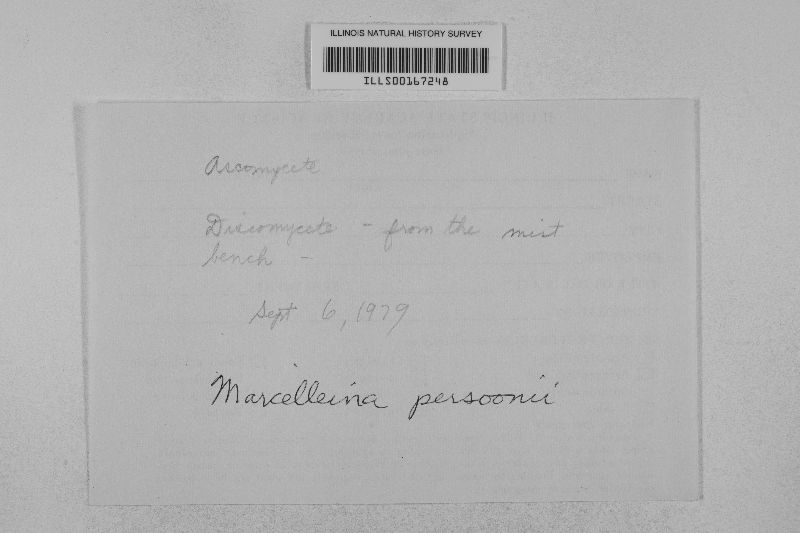 ILLINOIS NATURAL HISTORY SURVEY
ILLS00167248
Ascomycete
Discomycete - from the mist
bench -
Sept 6, 1979
Marcelleina persoonii